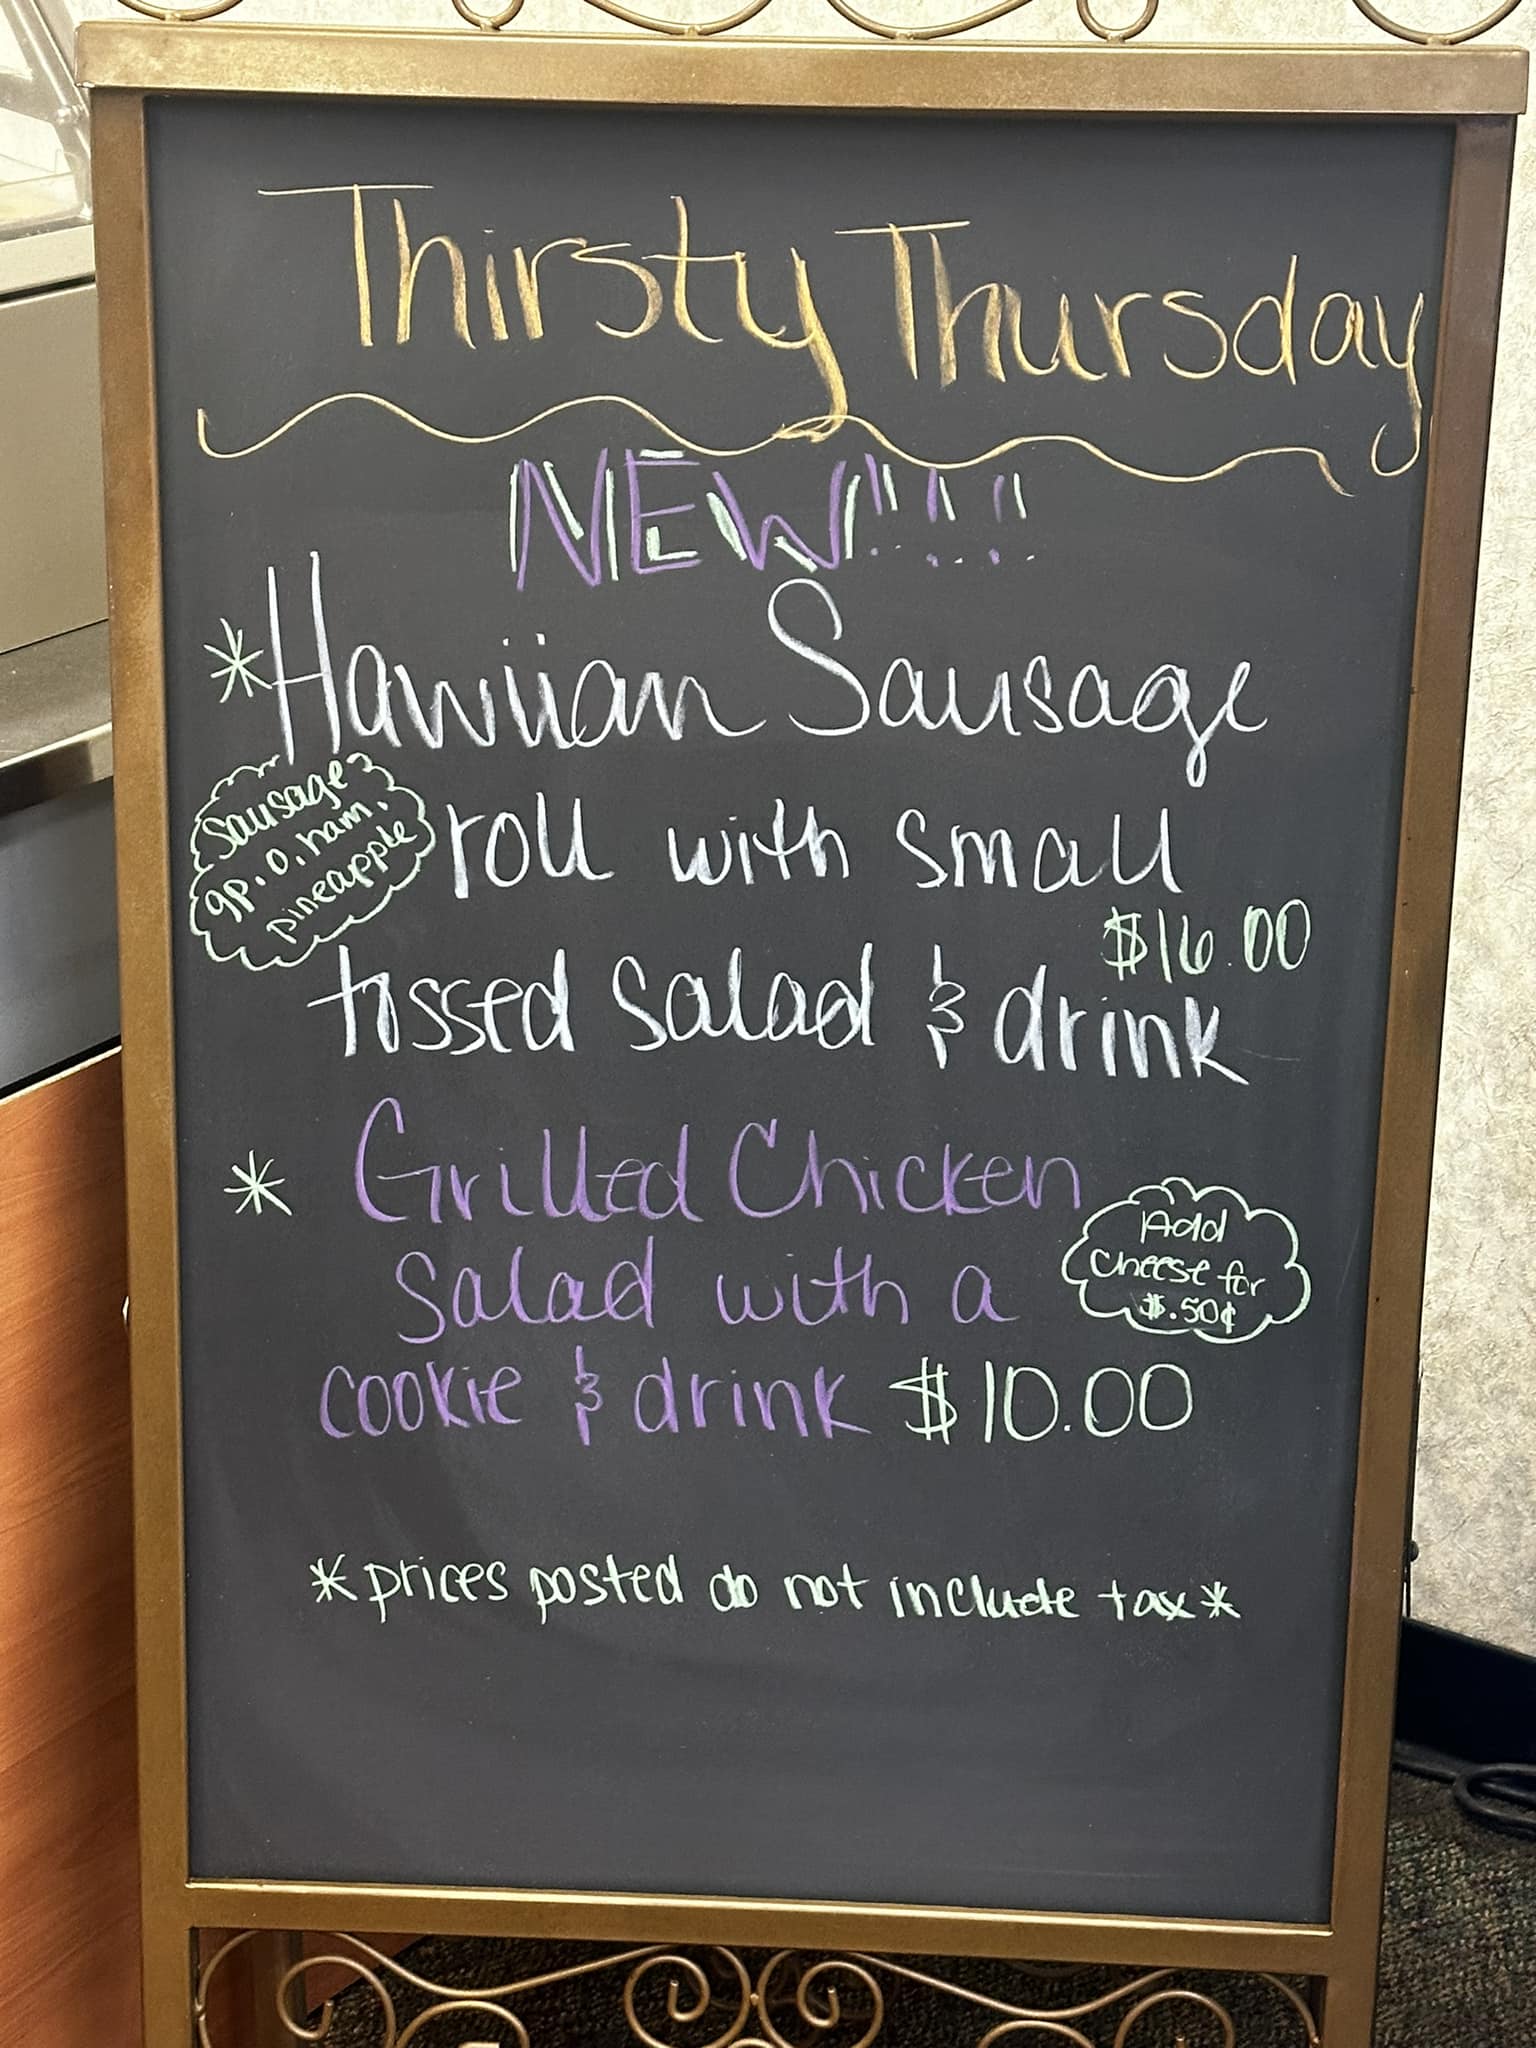 Thirsty Thursday
NEW!!!!
*Hawiian Sausage
roll with small
tossed salad & drink
$16.00
Sausage
gp, o, ham,
pineapple
* Grilled Chicken
Salad with a
cookie & drink $10.00
Add
Cheese for
$.50¢
*prices posted do not include tax*